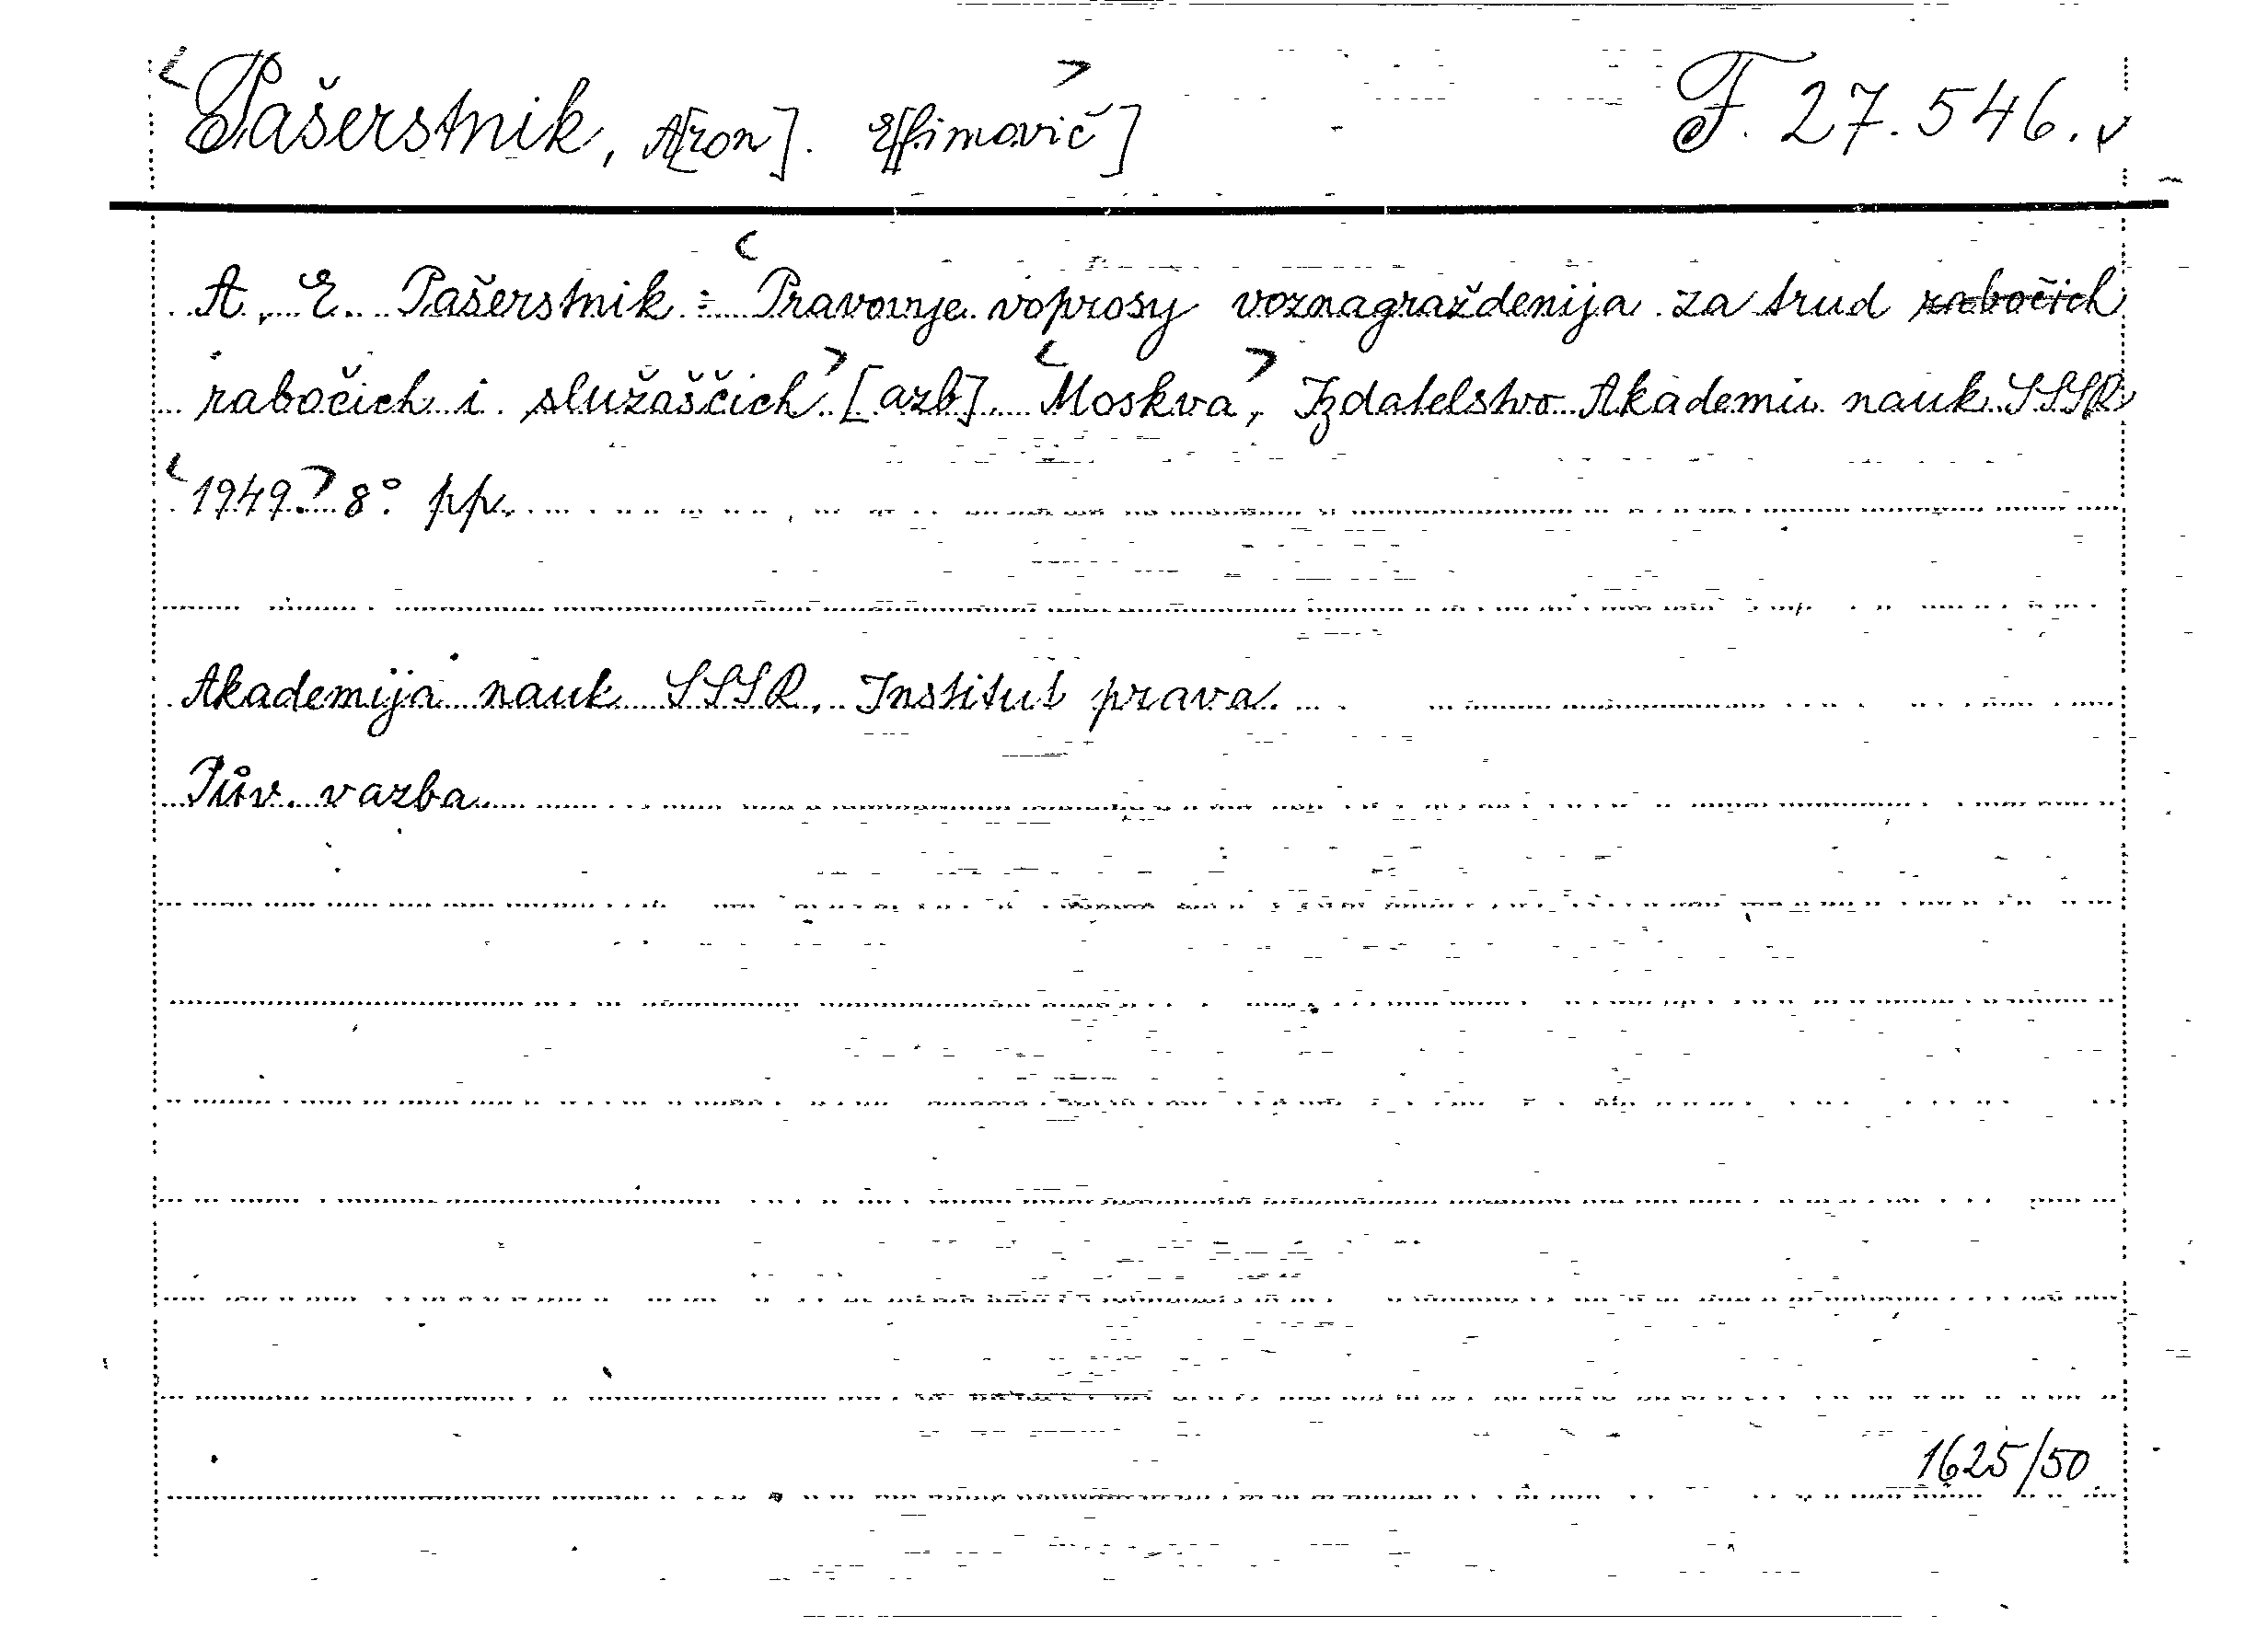 Pašerstnik, A[ron]. E[fimovič] F. 27.546.
A. E. Pašerstnik : Pravovyje voprosy voznagraždenija za trud rabočich
rabočich i služaščich [azb] Moskva, Izdatelstvo Akademii nauk SSSR
1949. 8° pp.
Akademija nauk SSSR. Institut prava.
Pův. vazba
1625/50